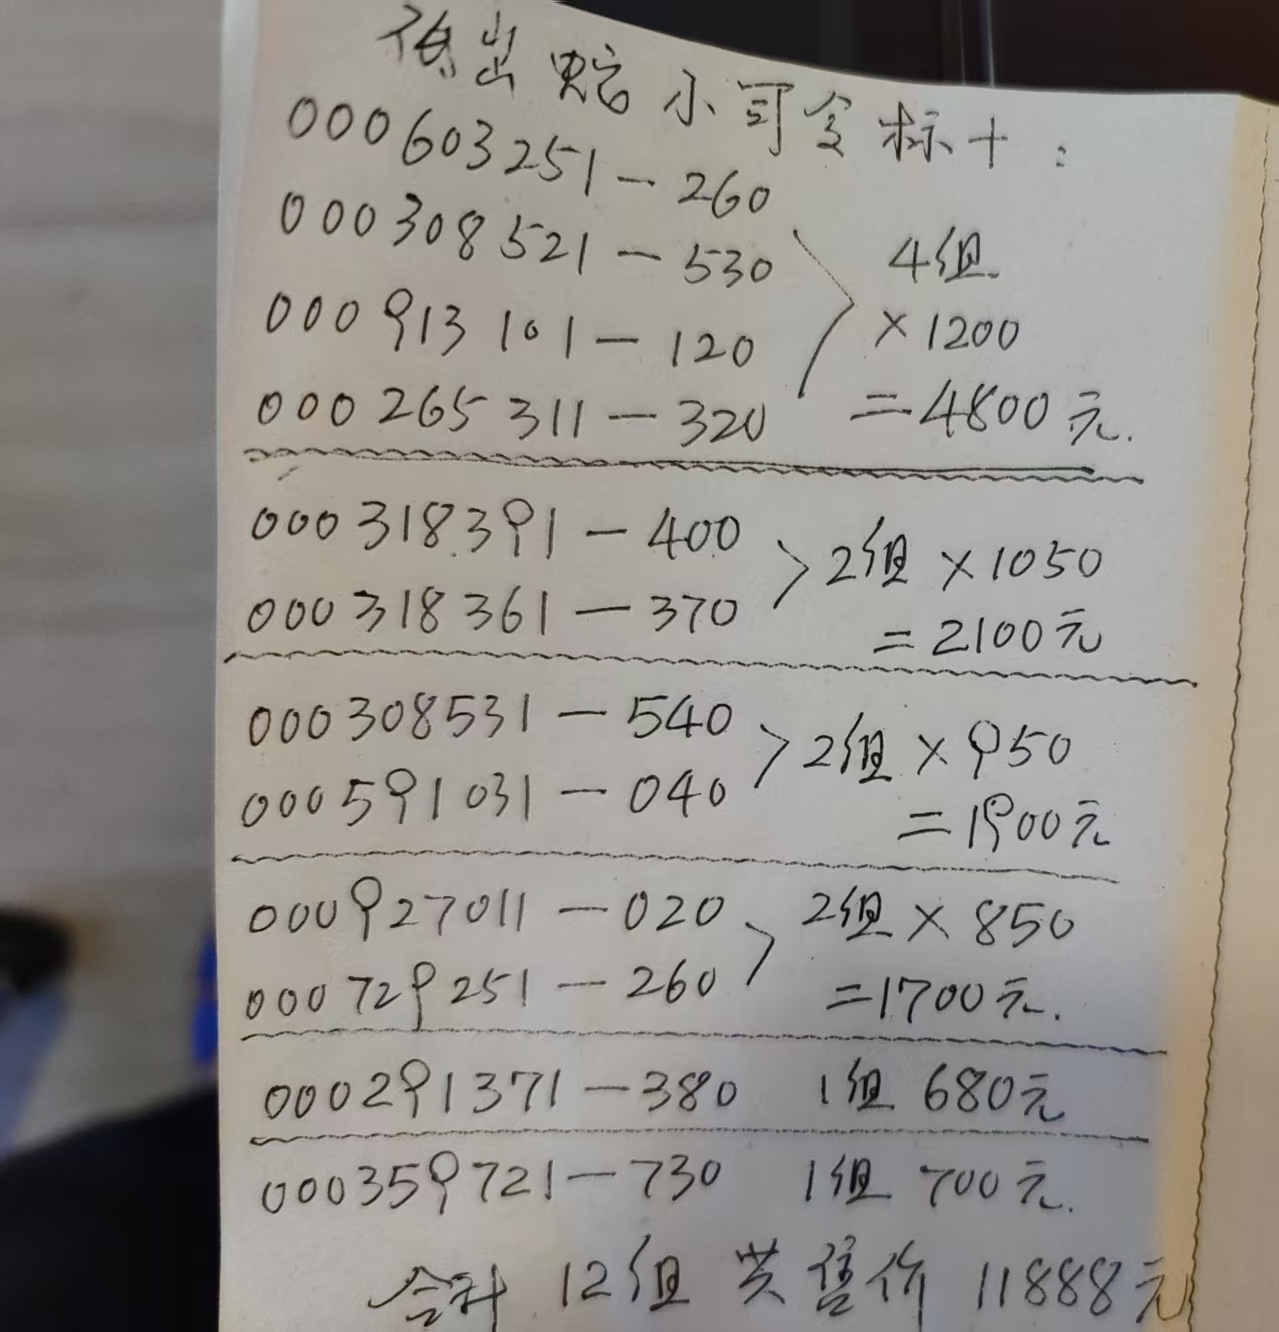 售出贴小司令标十:
000603251-260
000308521-530
000913101-120
000265311-320
4组
×1200
=4800元.
000318391-400
000318361-370
2组×1050
=2100元
000308531-540
000591031-040
2组×950
=1900元
000927011-020
000729251-260
2组×850
=1700元.
000291371-380 1组 680元
000359721-730 1组 700元.
合计 12组 共售价 11888元